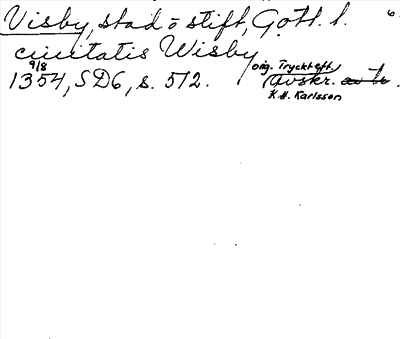 Visby, stad o stift, Gotl. l. 6
ciuitatis Wisby
9/8
1354, SD6, s. 512.
orig. Tryckt eft.
Avskr.
K.H. Karlsson